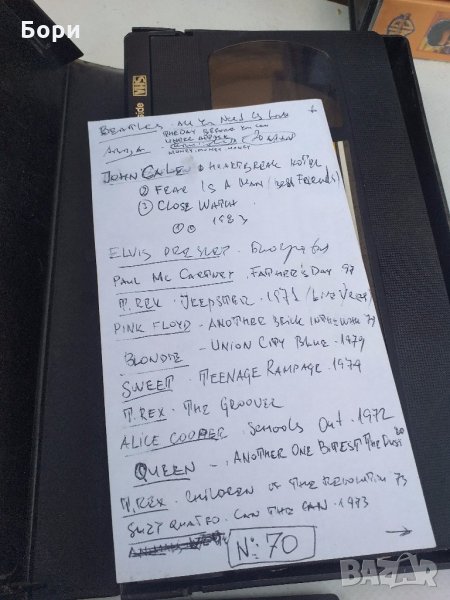 Бори
VHS
BEATLES - All You Need Is Love
THE DAY BEFORE YOU CAME
MONEY MONEY MONEY
JOHN CALE ① HEARTBREAK HOTEL
② FEAR IS A MAN / BEST FRIENDS)
③ CLOSE WATCH
1983
ELVIS PRESLEY -
PAUL MC CARTNEY. FATHER'S DAY 97
T. REX - JEEPSTER - 1971 /
PINK FLOYD - ANOTHER BRICK IN THE WALL 79
BLONDIE - UNION CITY BLUE - 1979
SWEET - TEENAGE RAMPAGE - 1974
T. REX - THE GROOVER
ALICE COOPER - SCHOOLS Out - 1972
QUEEN - ANOTHER ONE BITES T THE DUST 80
T. REX - CHILDREN of THE REVOLUTION 73
SUZY QUATRO - CAN THE CAN - 1973
№: 70
BAZAR